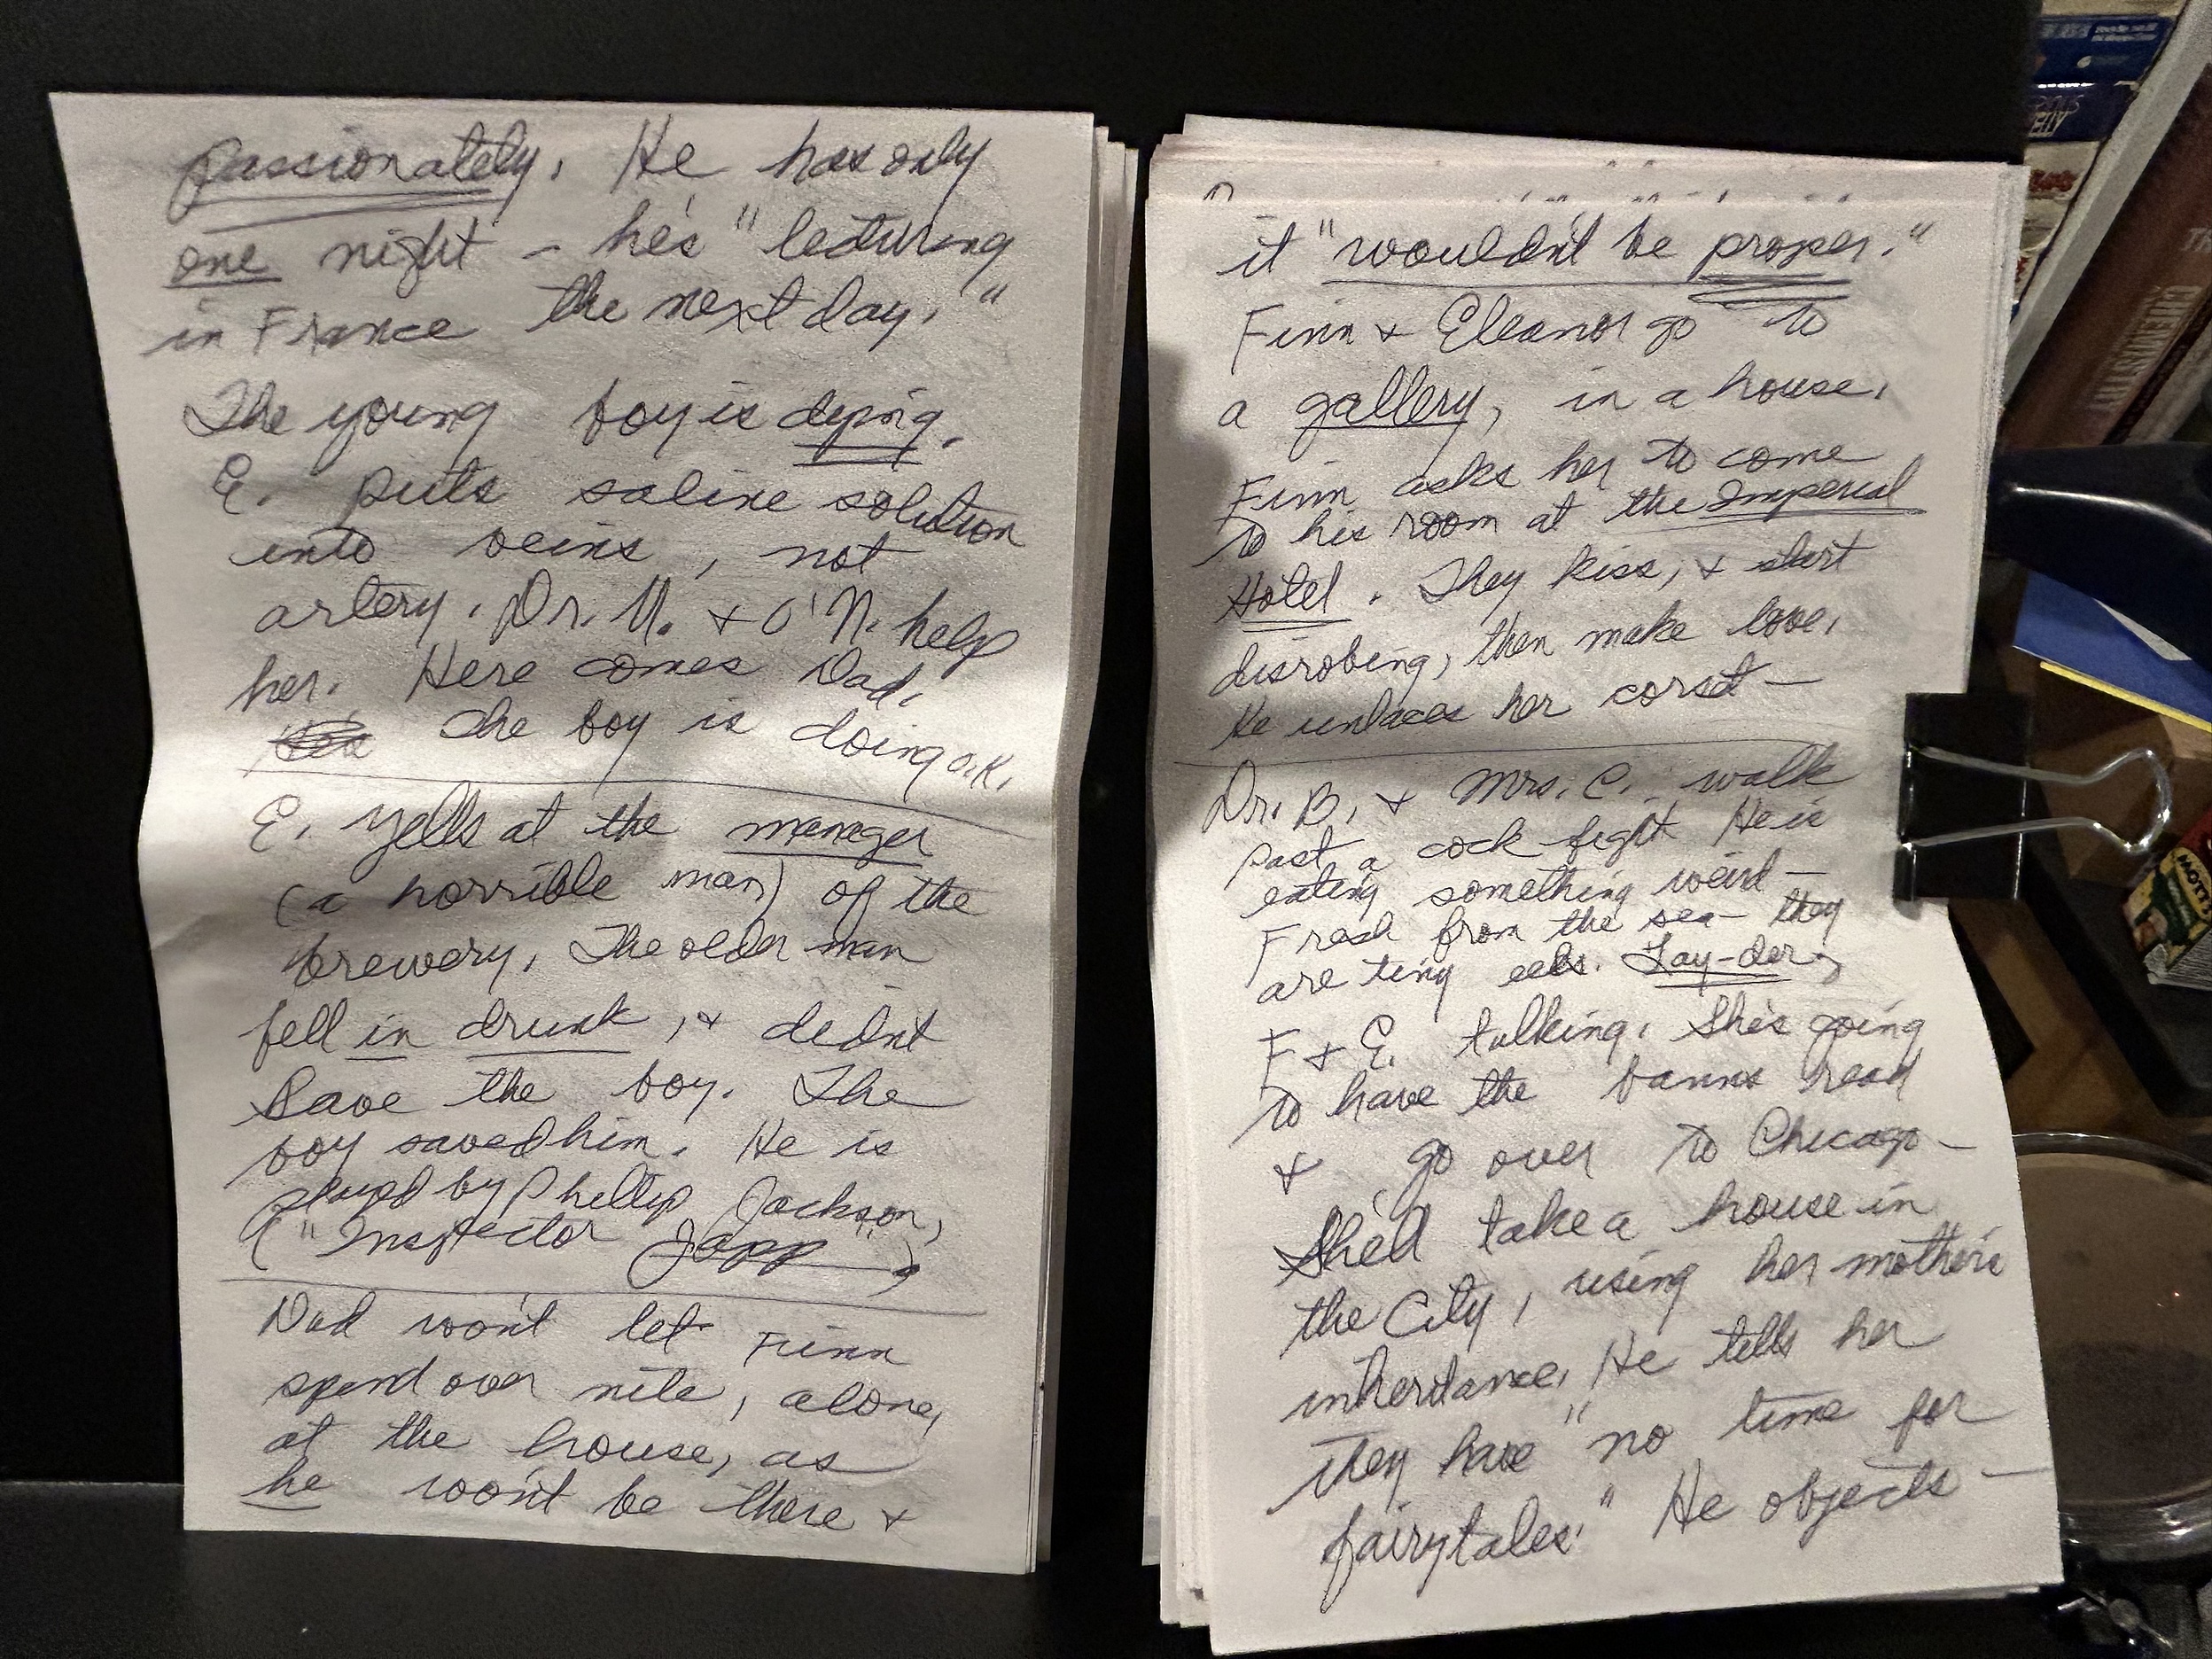 passionately. He has only
one night - he's "lecturing
in France the next day."
The young boy is dying.
E. puts saline solution
into veins, not
artery. Dr. M. + O'N. help
her. Here comes Dad.
The boy is doing O.K.
E. yells at the manager
(a horrible man) of the
brewery. The older man
fell in drunk, + didn't
save the boy. The
boy saved him. He is
played by Phillip Jackson,
("Inspector Japp")
Dad won't let Finn
spend over nite, alone,
at the house, as
he won't be there +
it "wouldn't be proper."
Finn + Eleanor go to
a gallery, in a house.
Finn asks her to come
to his room at the Imperial
Hotel. They kiss, + start
disrobing, then make love.
He unlaces her corset -
Dr. B. + Mrs. C. walk
past a cock-fight He is
eating something weird -
Fresh from the sea - they
are tiny eels. Lay-der,
F + E. talking. She's going
to have the banns read
+ go over to Chicago -
She'd take a house in
the City, using her mother's
inheritance. He tells her
they have "no time for
fairytales." He objects -